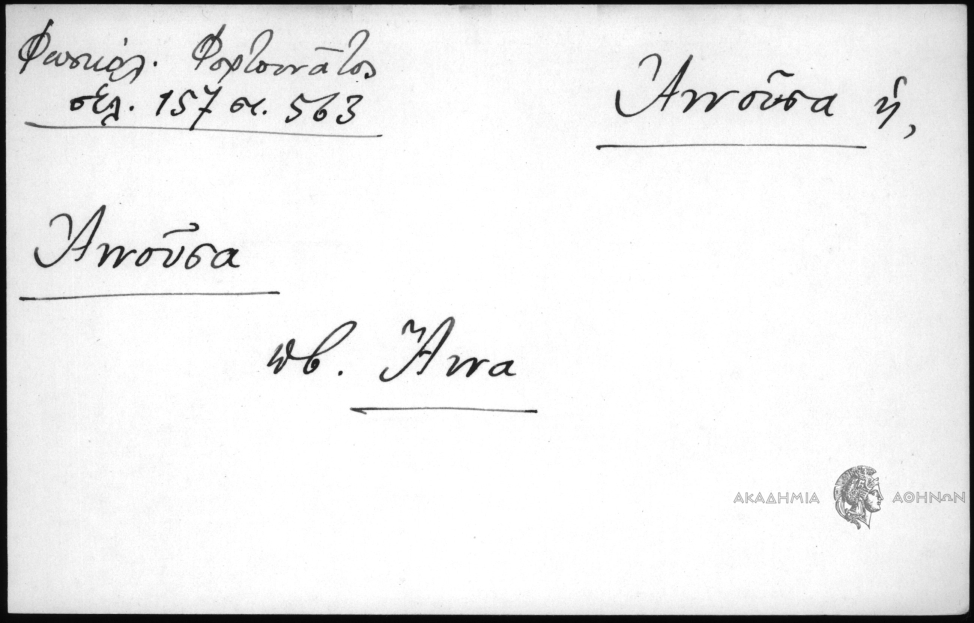 Φωσκόλ. Φορτουνᾶτος
σελ. 157 στ. 563
Ἀννοῦσα ἡ,
Ἀννοῦσα
πβ. Ἄννα
ΑΚΑΔΗΜΙΑ ΑΘΗΝΩΝ